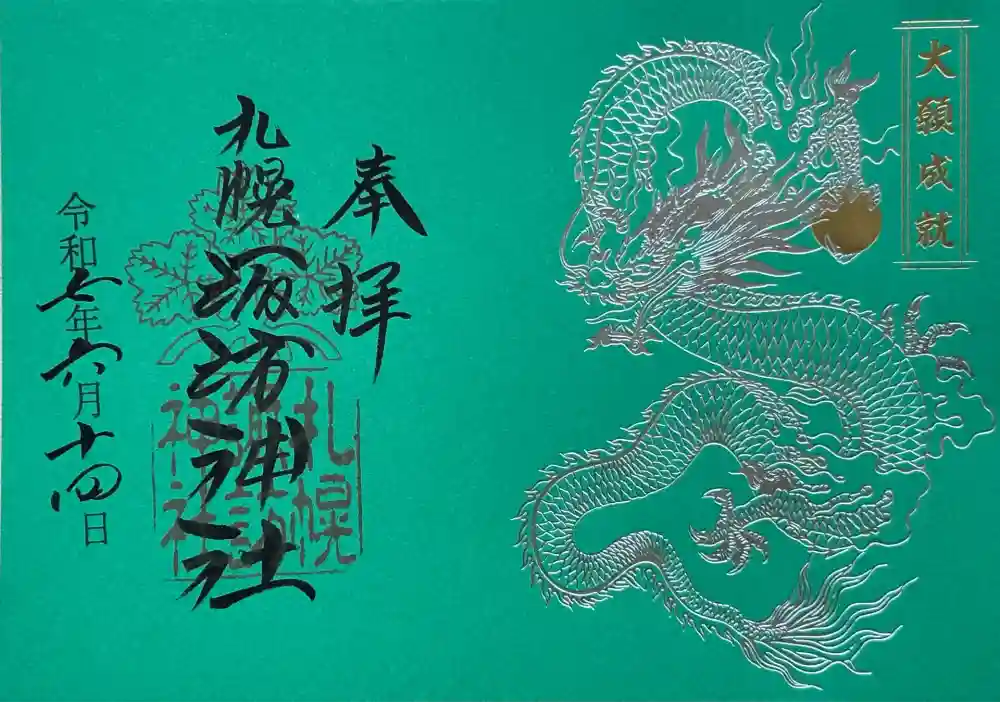 大願成就
奉拝
札幌諏訪神社
令和七年六月十四日
札幌
神社